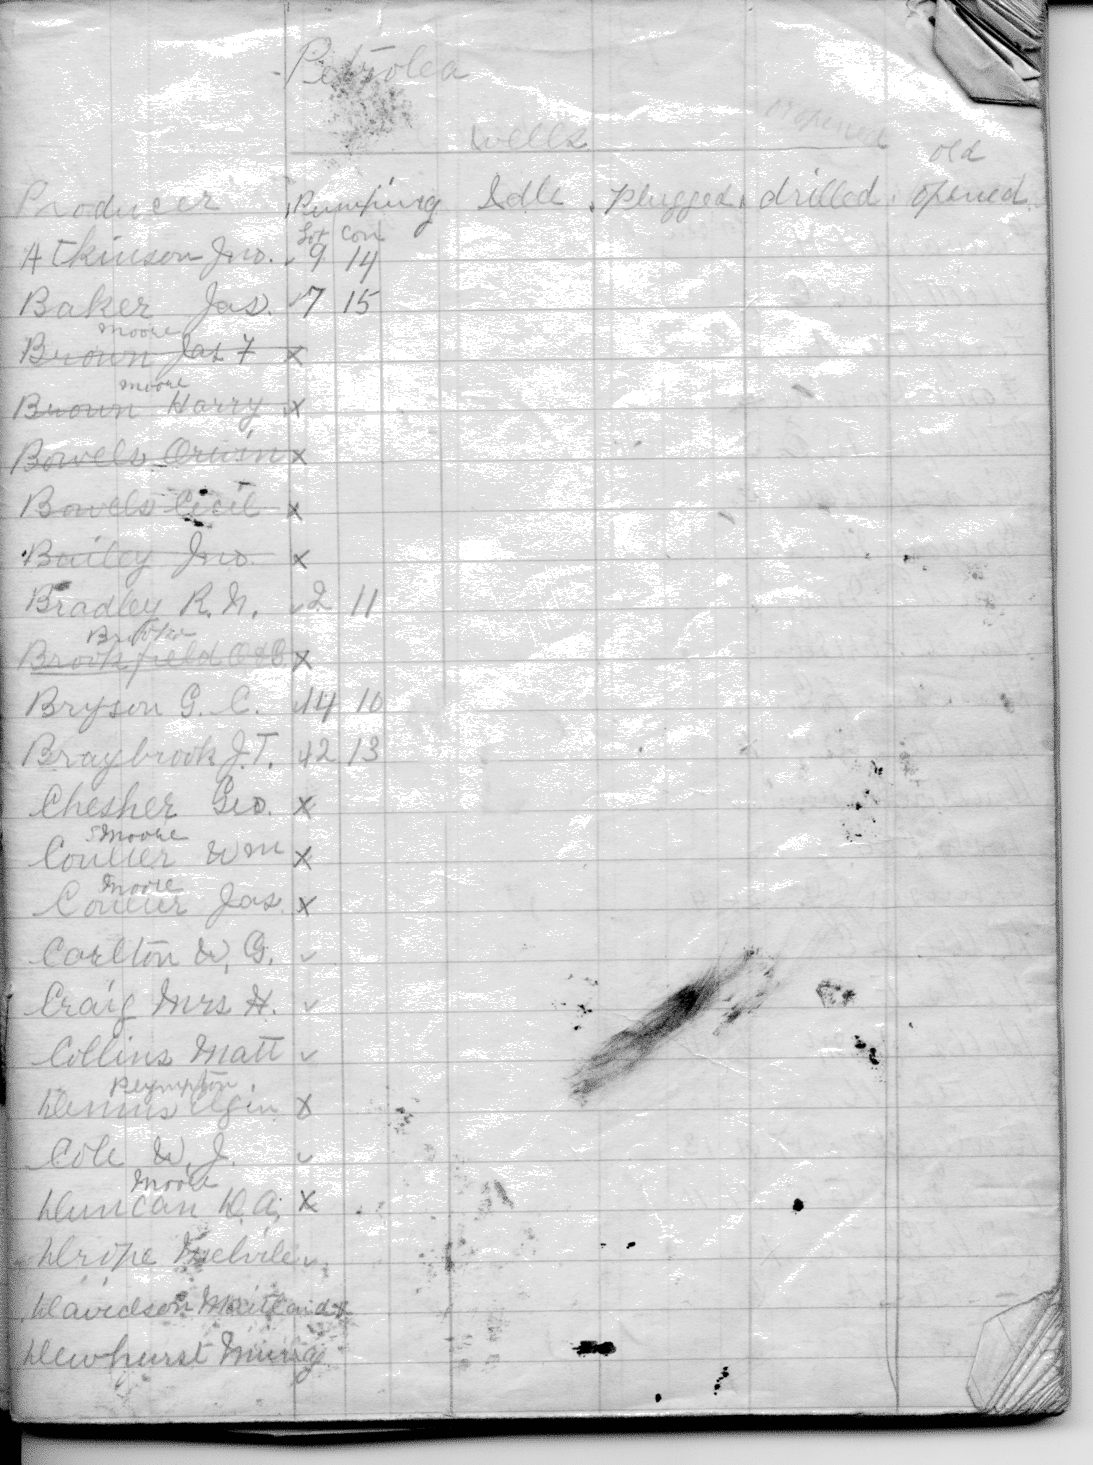 Petrolea
Wells
old
Producer Pumping Idle Plugged drilled opened
Lot Con
Atkinson Jno. ✓ 9 14
Baker Jas. ✓ 7 15
Moore
Brown Jas F x
Moore
Brown Harry x
Bowels Orwin x
Bowels Cecil x
Bailey Jno. x
Bradley R. N. ✓ 2 11
Brookfield x
Bryson G. C. 14 10
Braybrook J. T. 12 13
Chesher Geo. x
Moore
Coulter Wm x
Moore
Coulter Jas. x
Carlton W. G. ✓
Craig Mrs H. ✓
Collins Matt ✓
Plympton
Dennis Elgin x
Cole W. J. ✓
Moore
Duncan D. A. x
Drope Melvile ✓
Davidson Maitland x
Dewhurst